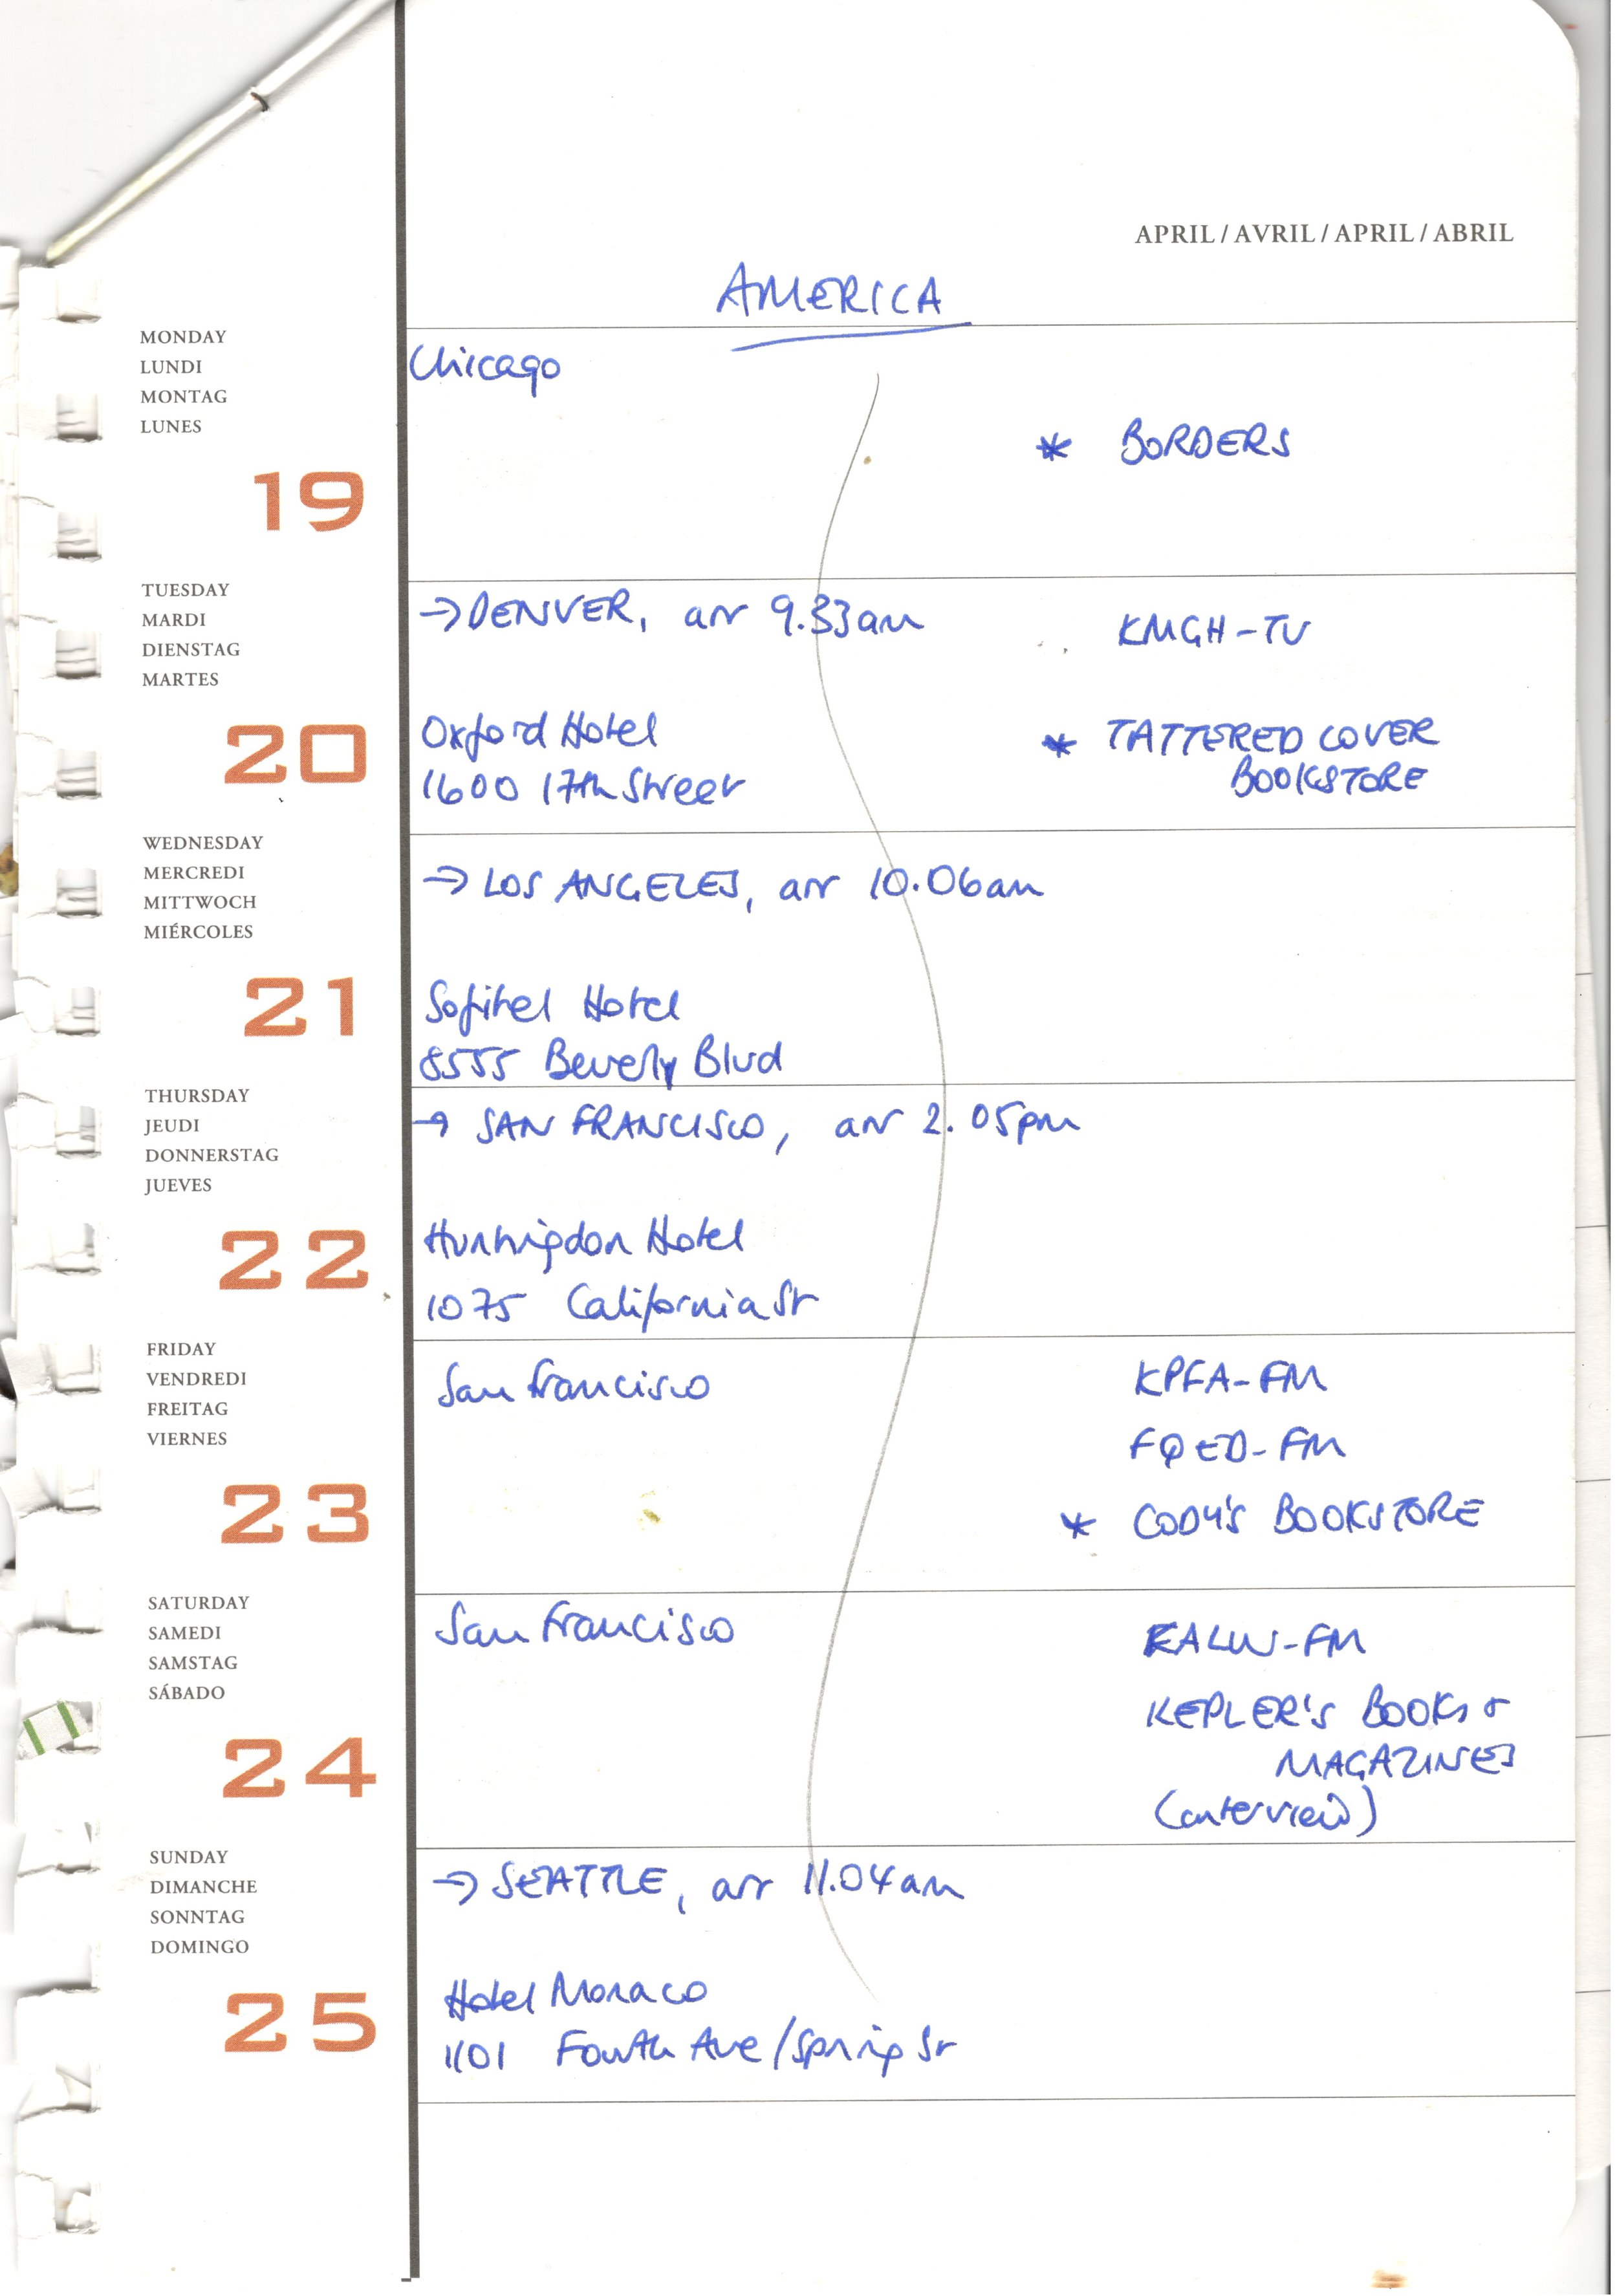 APRIL / AVRIL / APRIL / ABRIL
AMERICA
MONDAY
LUNDI
MONTAG
LUNES
19
Chicago
* BORDERS
TUESDAY
MARDI
DIENSTAG
MARTES
20
→ DENVER, arr 9.33am
KMGH-TV
Oxford Hotel
1600 17th Street
* TATTERED COVER
BOOKSTORE
WEDNESDAY
MERCREDI
MITTWOCH
MIÉRCOLES
21
→ LOS ANGELES, arr 10.06am
Sofitel Hotel
8555 Beverly Blvd
THURSDAY
JEUDI
DONNERSTAG
JUEVES
22
→ SAN FRANCISCO, arr 2.05pm
Huntingdon Hotel
1075 California St
FRIDAY
VENDREDI
FREITAG
VIERNES
23
San Francisco
KPFA-FM
FQED-FM
* CODY'S BOOKSTORE
SATURDAY
SAMEDI
SAMSTAG
SÁBADO
24
San Francisco
KALW-FM
KEPLER'S BOOKS &
MAGAZINES
(interview)
SUNDAY
DIMANCHE
SONNTAG
DOMINGO
25
→ SEATTLE, arr 11.04am
Hotel Monaco
1101 Fourth Ave/Spring St